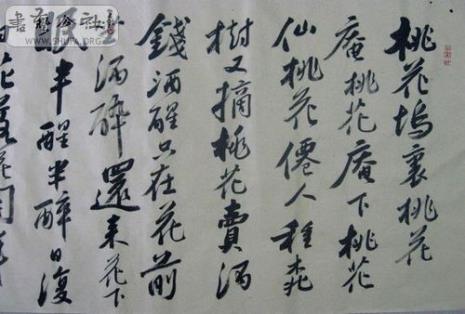 桃花塢裏桃花
庵桃花庵下桃花
仙桃花僊人種桃
樹又摘桃花賣酒
錢酒醒只在花前
酒醉還来花下
半醒半醉日復
花落花開年
WWW.SHUFA.ORG